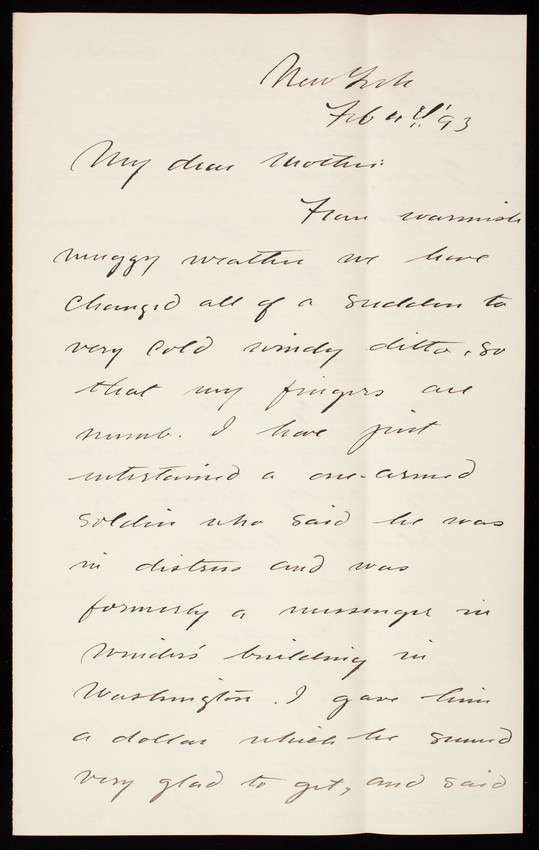 New York
Feb 4th '93
My dear Mother:
From warmish
muggy weather we have
changed all of a sudden to
very cold windy ditto, so
that my fingers are
numb. I have just
entertained a one-armed
soldier who said he was
in distress and was
formerly a messenger in
Winder's building in
Washington. I gave him
a dollar which he seemed
very glad to get, and said